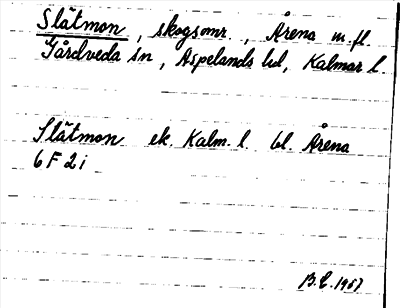 Slätmon, skogsomr., Årena m.fl.
Gårdveda sn, Aspelands hd, Kalmar l.
Slätmon ek. Kalm. l. bl. Årena
6 F 2 i
B.E. 1967